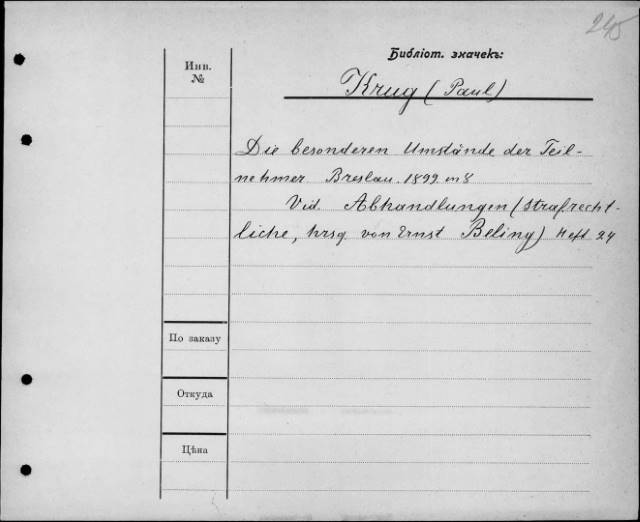 245
Библіот. значекъ:
Инв.
№
Krug (Paul)
Die besonderen Umstände der Teil-
nehmer. Breslau. 1899 in 8
Vid. Abhandlungen (Strafrecht-
liche, hrsg. von Ernst Beling) Heft 24
По заказу
Откуда
Цѣна